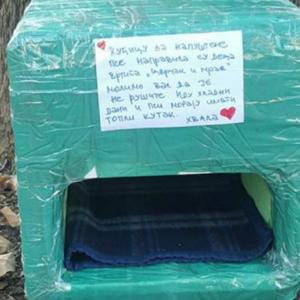 КУЋИЦУ ЗА НАПУШТЕНЕ
ПСЕ НАПРАВИЛА СУ ДЕЦА
ВРТИЋА „ЦВРЧАК И МРАВ"
МОЛИМО ВАС ДА ЈЕ
НЕ РУШИТЕ ИДУ ХЛАДНИ
ДАНИ И ПСИ МОРАЈУ ИМАТИ
ТОПЛИ КУТАК. ХВАЛА